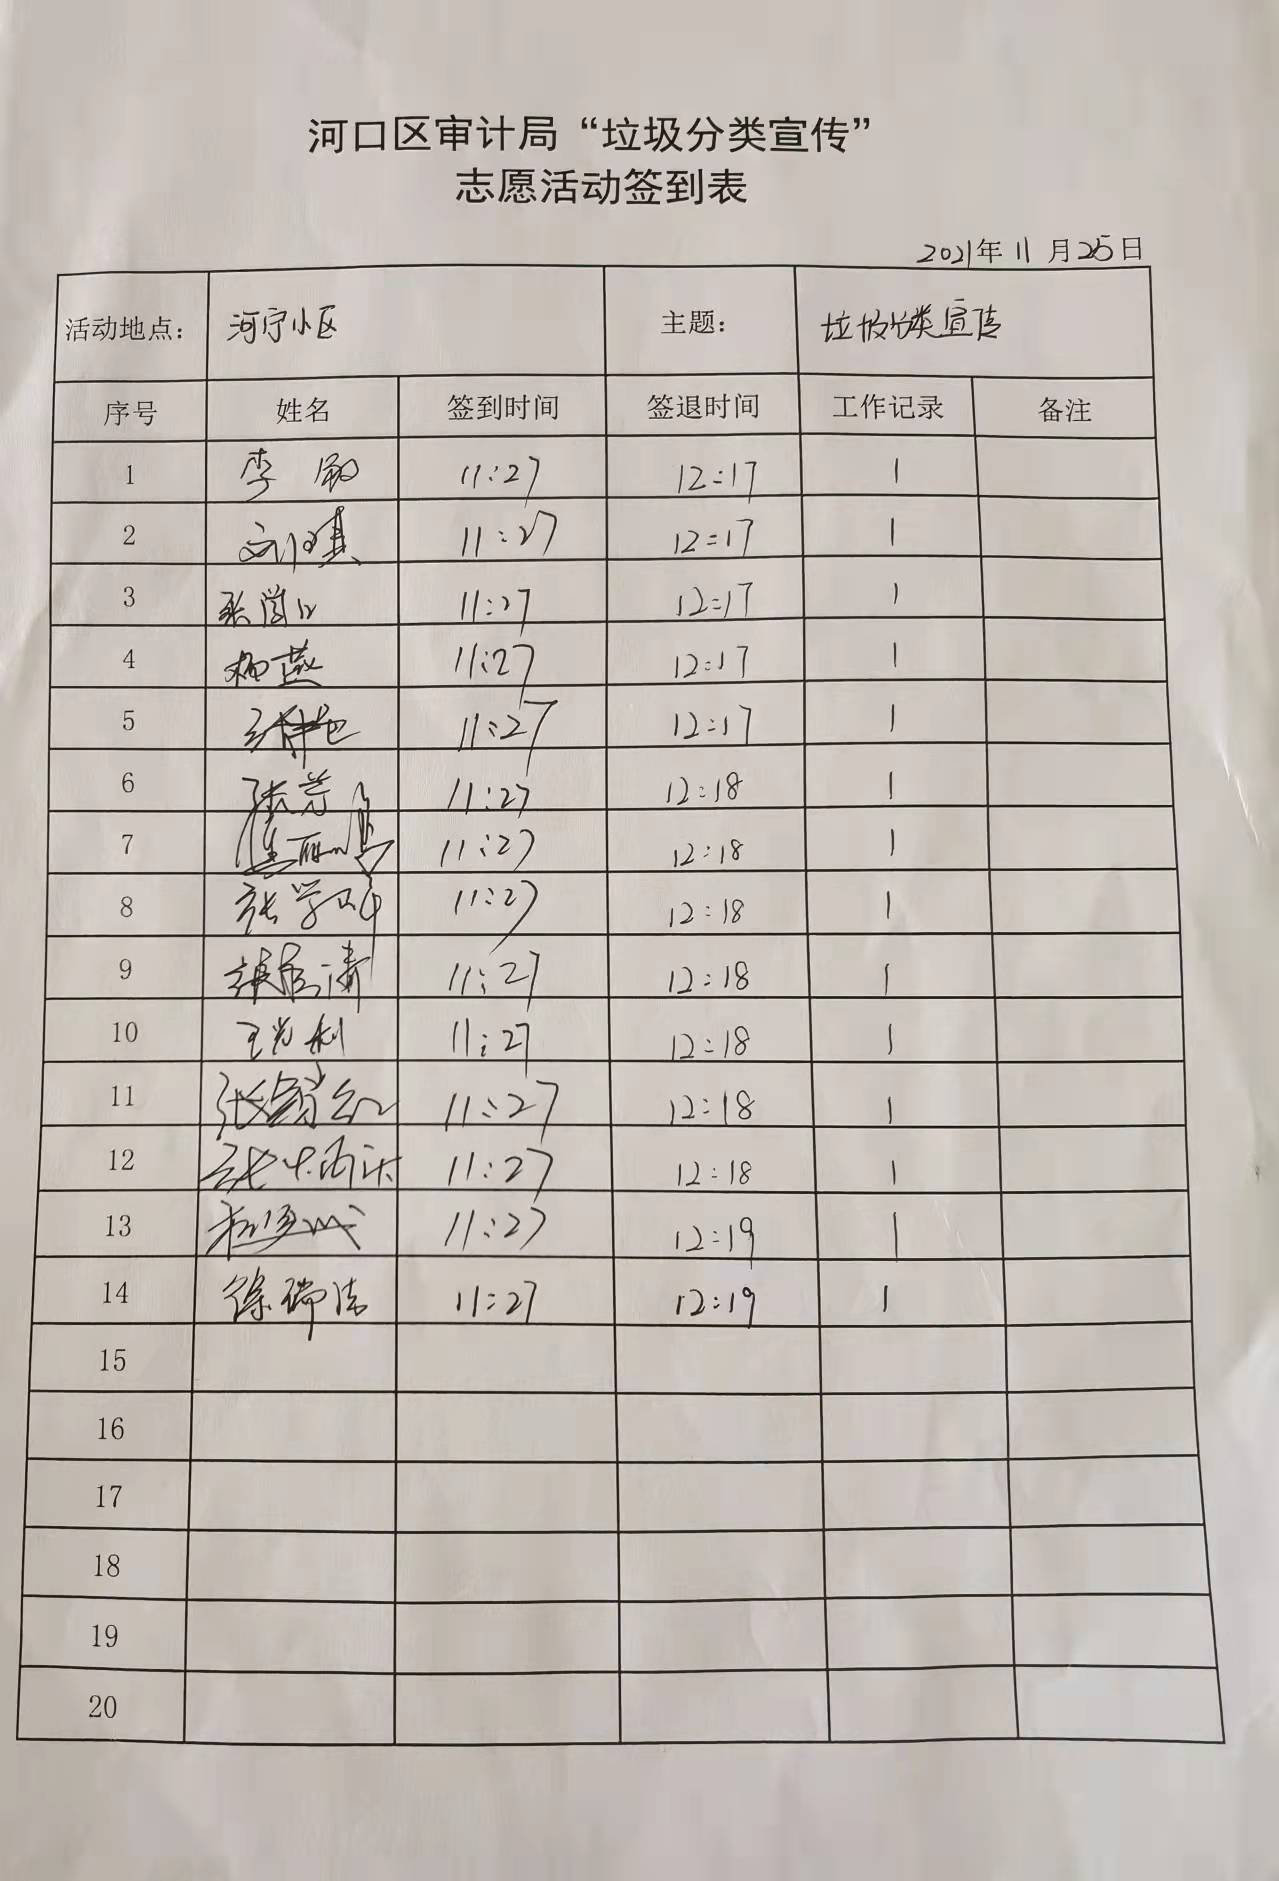 河口区审计局“垃圾分类宣传”
志愿活动签到表
2021年 11 月25日
活动地点: 河宁小区 主题: 垃圾分类宣传
序号 姓名 签到时间 签退时间 工作记录 备注
1 李敏 11:27 12:17 1
2 11:27 12:17 1
3 11:27 12:17 1
4 杨燕 11:27 12:17 1
5 11:27 12:17 1
6 张芳 11:27 12:18 1
7 11:27 12:18 1
8 张学 11:27 12:18 1
9 11:27 12:18 1
10 11:27 12:18 1
11 11:27 12:18 1
12 11:27 12:18 1
13 11:27 12:19 1
14 徐瑞洁 11:27 12:19 1
15
16
17
18
19
20